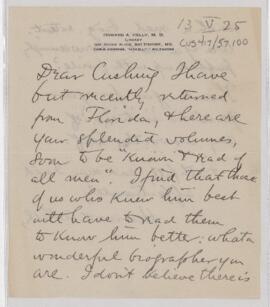 13 V 25
CUS417/57.100
HOWARD A. KELLY, M. D.
1406 EUTAW PLACE, BALTIMORE, MD.
Dear Cushing I have
but recently returned
from Florida, & here are
your splendid volumes,
soon to be "Known & read of
all men". I find that those
of us who knew him best
will have to read them
to know him better: what a
wonderful biographer you
are. I don't believe there is